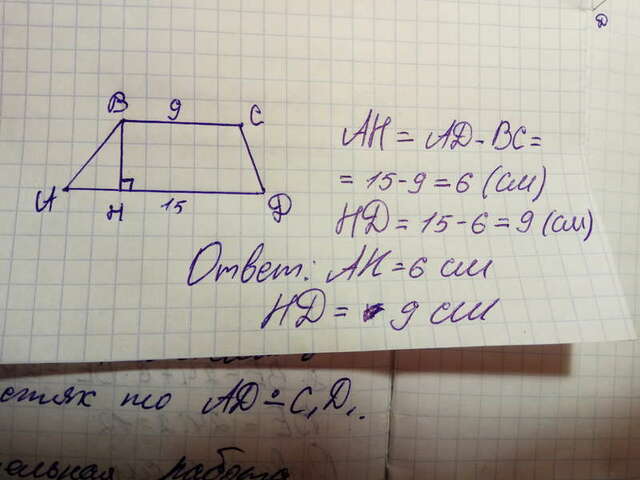 B 9 C
A H 15 D
AH = AD - BC =
= 15 - 9 = 6 (см)
HD = 15 - 6 = 9 (см)
Ответ: AH = 6 см
HD = 9 см
то AD = C₁D₁.
работа
D